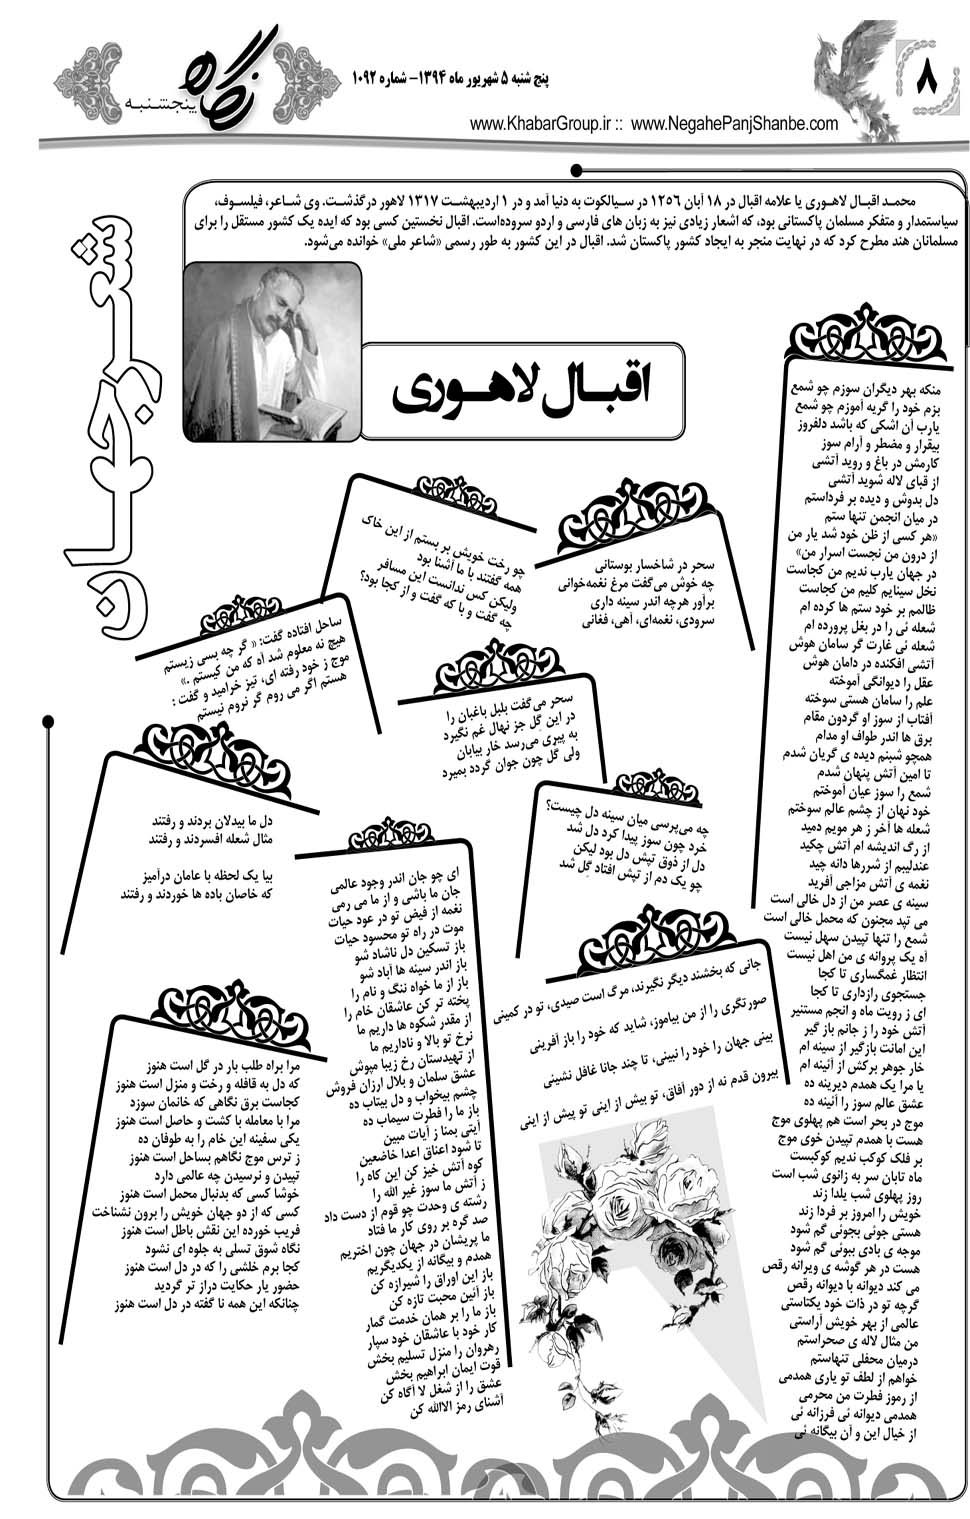 ۸
پنج شنبه ۵ شهریور ماه ۱۳۹۴- شماره ۱۰۹۲
www.KhabarGroup.ir :: www.NegahePanjShanbe.com
نگاه
پنجشنبه
شعر جهان
محمد اقبال لاهوری یا علامه اقبال در ۱۸ آبان ۱۲۵۶ در سیالکوت به دنیا آمد و در ۱ اردیبهشت ۱۳۱۷ لاهور درگذشت. وی شاعر، فیلسوف،
سیاستمدار و متفکر مسلمان پاکستانی بود، که اشعار زیادی نیز به زبان های فارسی و اردو سروده‌است. اقبال نخستین کسی بود که ایده یک کشور مستقل را برای
مسلمانان هند مطرح کرد که در نهایت منجر به ایجاد کشور پاکستان شد. اقبال در این کشور به طور رسمی «شاعر ملی» خوانده می‌شود.
اقبال لاهوری
منکه بهر دیگران سوزم چو شمع
بزم خود را گریه آموزم چو شمع
یارب آن اشکی که باشد دلفروز
بیقرار و مضطر و آرام سوز
کارمش در باغ و روید آتشی
از قبای لاله شوید آتشی
دل بدوش و دیده بر فرداستم
در میان انجمن تنها ستم
«هر کسی از ظن خود شد یار من
از درون من نجست اسرار من»
در جهان یارب ندیم من کجاست
نخل سینایم کلیم من کجاست
ظالمم بر خود ستم ها کرده ام
شعله ئی را در بغل پرورده ام
شعله ئی غارت گر سامان هوش
آتشی افکنده در دامان هوش
عقل را دیوانگی آموخته
علم را سامان هستی سوخته
آفتاب از سوز او گردون مقام
برق ها اندر طواف او مدام
همچو شبنم دیده ی گریان شدم
تا امین آتش پنهان شدم
شمع را سوز عیان آموختم
خود نهان از چشم عالم سوختم
شعله ها آخر ز هر مویم دمید
از رگ اندیشه ام آتش چکید
عندلیبم از شررها دانه چید
نغمه ی آتش مزاجی آفرید
سینه ی عصر من از دل خالی است
می تپد مجنون که محمل خالی است
شمع را تنها تپیدن سهل نیست
آه یک پروانه ی من اهل نیست
انتظار غمگساری تا کجا
جستجوی رازداری تا کجا
ای ز رویت ماه و انجم مستنیر
آتش خود را ز جانم باز گیر
این امانت بازگیر از سینه ام
خار جوهر برکش از آئینه ام
یا مرا یک همدم دیرینه ده
عشق عالم سوز را آئینه ده
موج در بحر است هم پهلوی موج
هست با همدم تپیدن خوی موج
بر فلک کوکب ندیم کوکبست
ماه تابان سر به زانوی شب است
روز پهلوی شب یلدا زند
خویش را امروز بر فردا زند
هستی جوئی بجوئی گم شود
موجه ی بادی ببوئی گم شود
هست در هر گوشه ی ویرانه رقص
می کند دیوانه با دیوانه رقص
گرچه تو در ذات خود یکتاستی
عالمی از بهر خویش آراستی
من مثال لاله ی صحراستم
درمیان محفلی تنهاستم
خواهم از لطف تو یاری همدمی
از رموز فطرت من محرمی
همدمی دیوانه ئی فرزانه ئی
از خیال این و آن بیگانه ئی
سحر در شاخسار بوستانی
چه خوش می‌گفت مرغ نغمه‌خوانی
برآور هرچه اندر سینه داری
سرودی، نغمه‌ای، آهی، فغانی
چو رخت خویش بر بستم از این خاک
همه گفتند با ما آشنا بود
ولیکن کس ندانست این مسافر
چه گفت و با که گفت و از کجا بود؟
ساحل افتاده گفت: « گر چه بسی زیستم
هیچ نه معلوم شد آه که من کیستم .»
موج ز خود رفته ای، تیز خرامید و گفت :
هستم اگر می روم گر نروم نیستم
سحر می‌گفت بلبل باغبان را
در این گِل جز نهال غم نگیرد
به پیری می‌رسد خار بیابان
ولی گل چون جوان گردد بمیرد
دل ما بیدلان بردند و رفتند
مثال شعله افسردند و رفتند
بیا یک لحظه با عامان درآمیز
که خاصان باده ها خوردند و رفتند
چه می‌پرسی میان سینه دل چیست؟
خرد چون سوز پیدا کرد دل شد
دل از ذوق تپش دل بود لیکن
چو یک دم از تپش افتاد گِل شد
ای چو جان اندر وجود عالمی
جان ما باشی و از ما می رمی
نغمه از فیض تو در عود حیات
موت در راه تو محسود حیات
باز تسکین دل ناشاد شو
باز اندر سینه ها آباد شو
باز از ما خواه ننگ و نام را
پخته تر کن عاشقان خام را
از مقدر شکوه ها داریم ما
نرخ تو بالا و ناداریم ما
از تهیدستان رخ زیبا مپوش
عشق سلمان و بلال ارزان فروش
چشم بیخواب و دل بیتاب ده
باز ما را فطرت سیماب ده
آیتی بنما ز آیات مبین
تا شود اعناق اعدا خاضعین
کوه آتش خیز کن این کاه را
ز آتش ما سوز غیر الله را
رشته ی وحدت چو قوم از دست داد
صد گره بر روی کار ما فتاد
ما پریشان در جهان چون اختریم
همدم و بیگانه از یکدیگریم
باز این اوراق را شیرازه کن
باز آئین محبت تازه کن
باز ما را بر همان خدمت گمار
کار خود با عاشقان خود سپار
رهروان را منزل تسلیم بخش
قوت ایمان ابراهیم بخش
عشق را از شغل لا آگاه کن
آشنای رمز الاالله کن
جانی که بخشند دیگر نگیرند، مرگ است صیدی، تو در کمینی
صورتگری را از من بیاموز، شاید که خود را باز آفرینی
بینی جهان را خود را نبینی، تا چند جانا غافل نشینی
بیرون قدم نه از دور آفاق، تو بیش از اینی تو پیش از اینی
مرا براه طلب بار در گل است هنوز
که دل به قافله و رخت و منزل است هنوز
کجاست برق نگاهی که خانمان سوزد
مرا با معامله با کشت و حاصل است هنوز
یکی سفینه این خام را به طوفان ده
ز ترس موج نگاهم بساحل است هنوز
تپیدن و نرسیدن چه عالمی دارد
خوشا کسی که بدنبال محمل است هنوز
کسی که از دو جهان خویش را برون نشناخت
فریب خورده این نقش باطل است هنوز
نگاه شوق تسلی به جلوه ای نشود
کجا برم خلشی را که در دل است هنوز
حضور یار حکایت دراز تر گردید
چنانکه این همه نا گفته در دل است هنوز